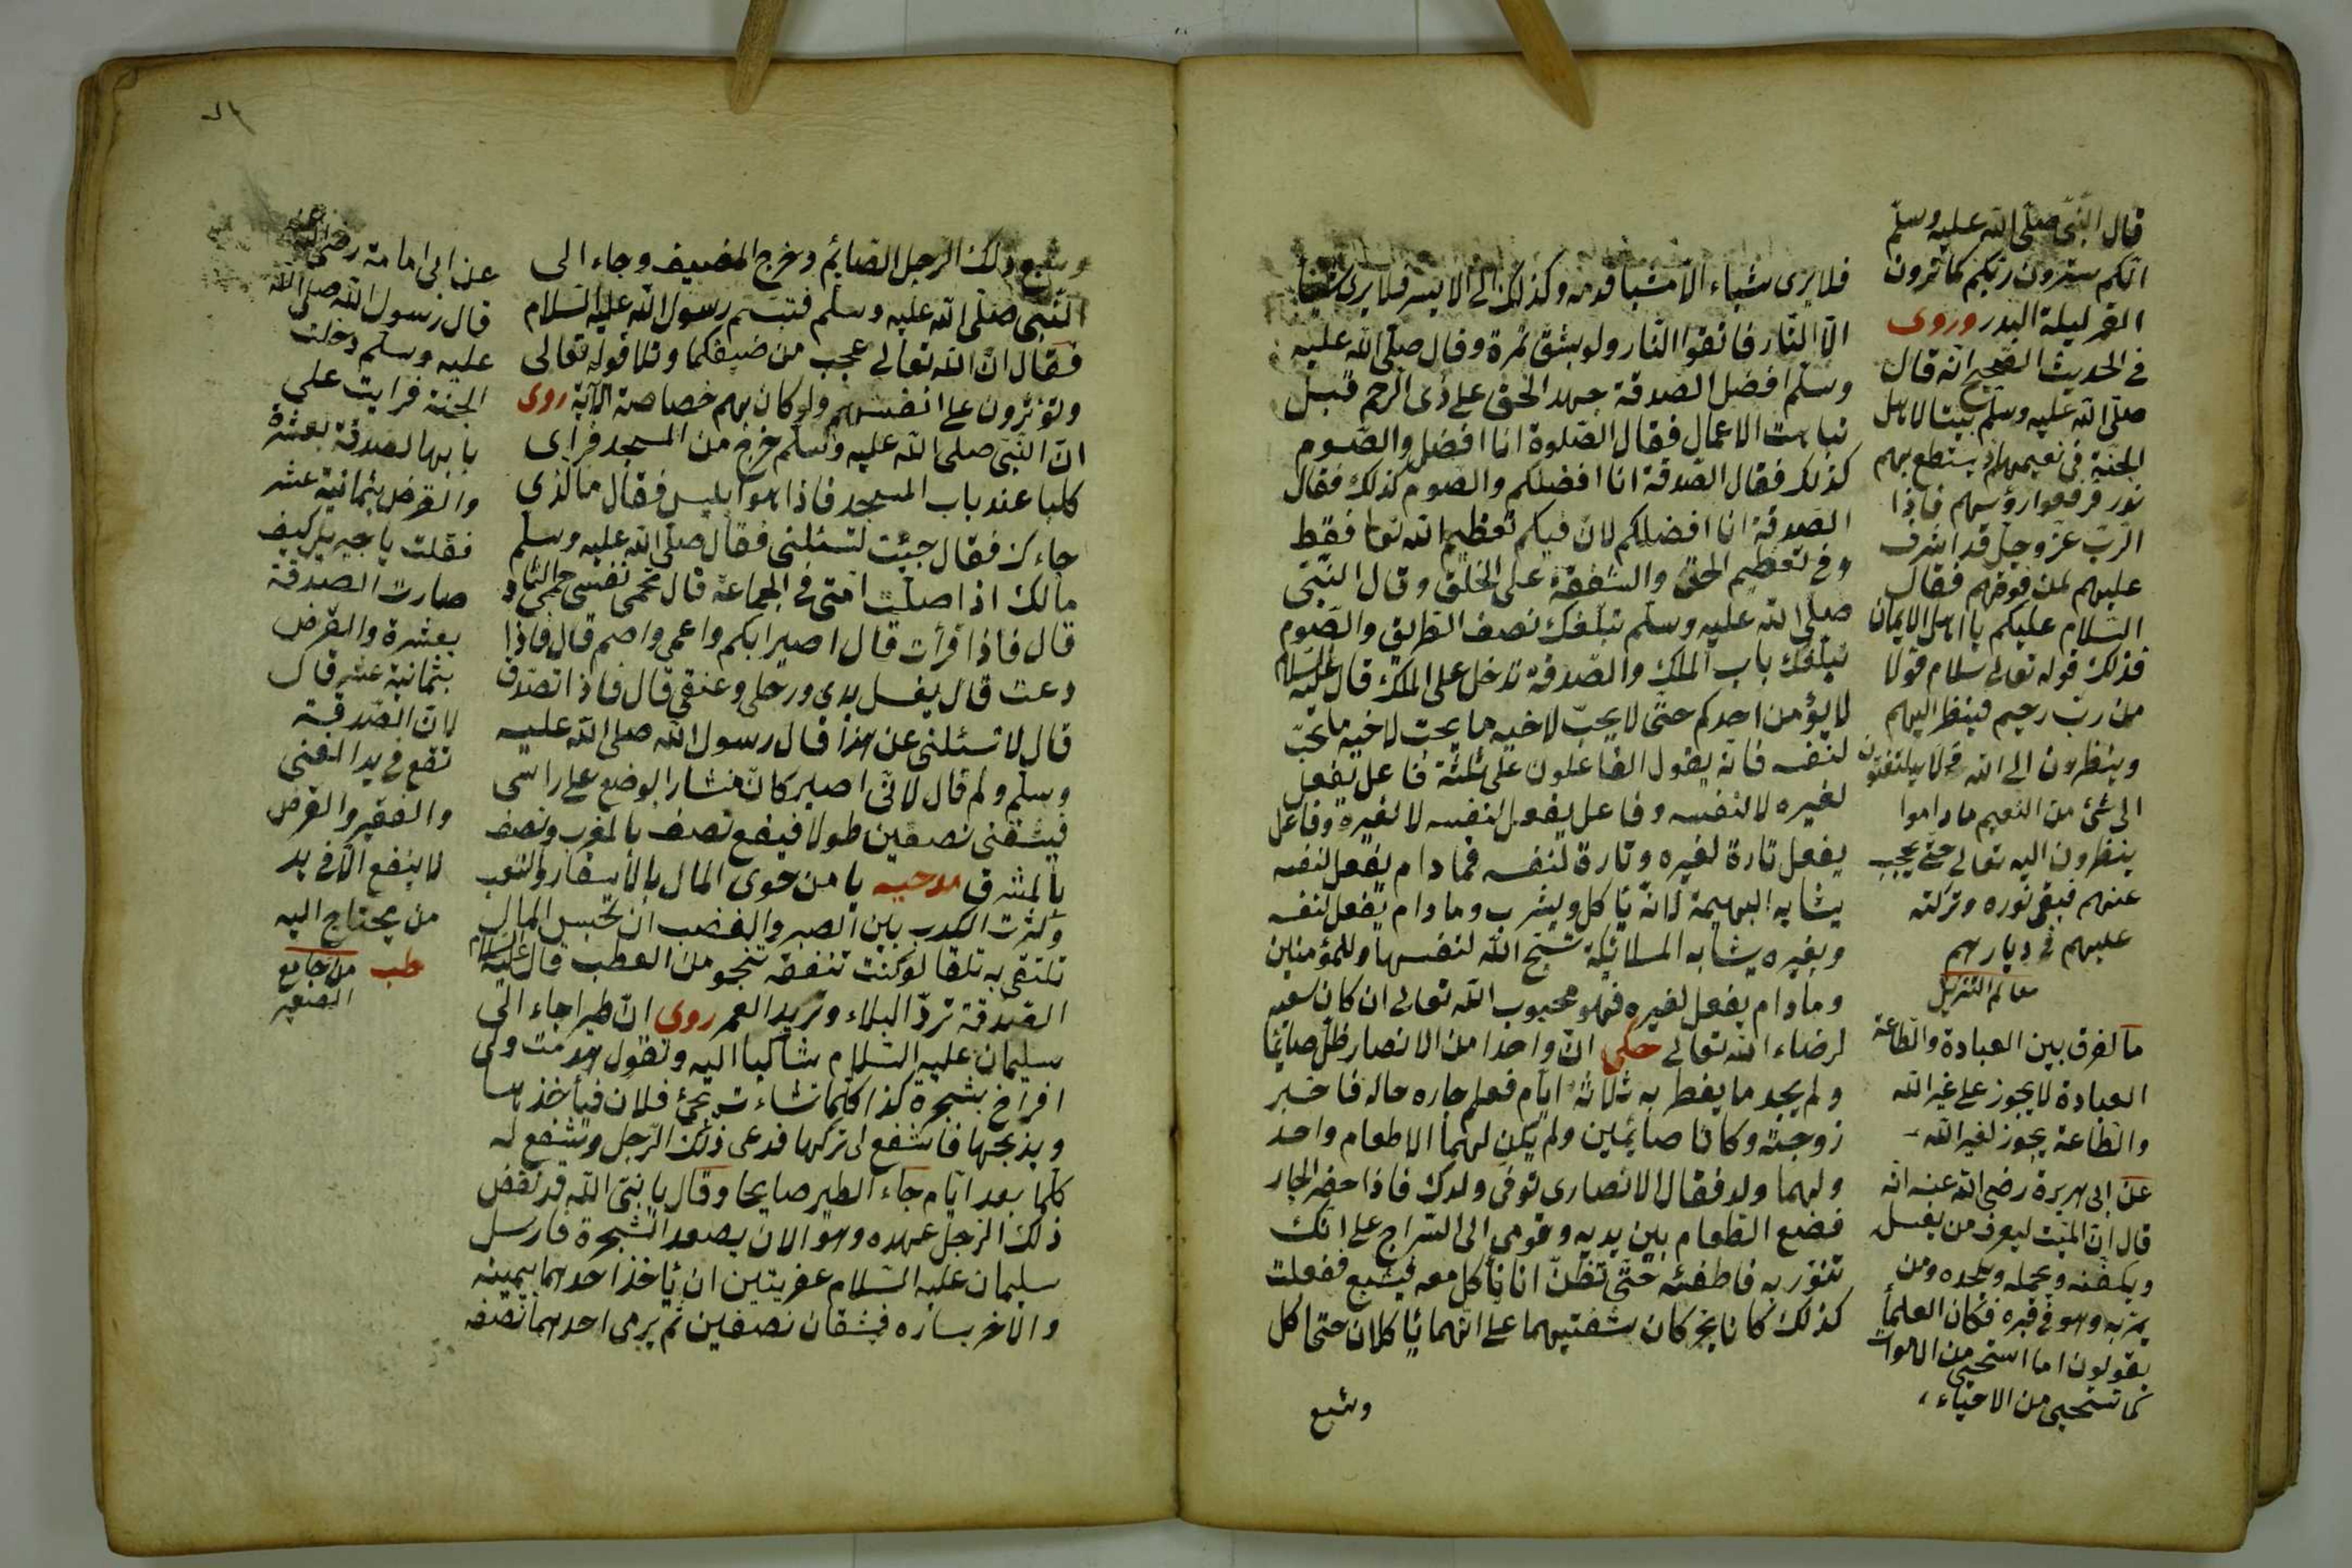 فلا يرى شياء الا شيا قدمه وكذلك الى الايسر فلا يرى شيئا
الا النار فاتقوا النار ولو بشق تمرة وقال صلى الله عليه
وسلم افضل الصدقة جهد الحق على ذى الرحم قبل
تباهت الاعمال فقال الصلوة انا افضل والصوم
كذلك فقال الصدقة انا افضلكم والصوم كذلك فقال
الصدقة انا افضلكم لان فيكم تعظيم الله تعا فقط
وفى تعظيم الحق والشفقة على الخلق وقال النبى
صلى الله عليه وسلم تبلغك نصف الطريق والصوم
تبلغك باب الملك والصدقة تدخل على الملك قال عليه السلام
لا يؤمن احدكم حتى لا يحب لاخيه ما يحب لاخيه ما يحب
لنفسه فانه يقول الفاعلون على ثلثة فاعل يفعل
لغيره لا لنفسه وفاعل يفعل لنفسه لا لغيره وفاعل
يفعل تارة لغيره وتارة لنفسه فما دام يفعل لنفسه
يشابه البهيمة لانه يأكل ويشرب وما دام يفعل لنفسه
وبغيره يشابه الملائكة تسبح الله لنفسها وللمؤمنين
وما دام يفعل لغيره فهو محبوب الله تعالى ان كان سعيه
لرضاء الله تعالى حكى ان واحدا من الانصار ظل صائما
ولم يجد ما يفطر به ثلاثة ايام فعلم جاره حاله فاخبر
زوجته وكانا صائمين ولم يكن لهما الا طعام واحد
ولهما ولد فقال الانصارى توفى ولدك فاذا حضر الجار
فضع الطعام بين يديه وقومى الى السراج على انك
تنور به فاطفئه حتى تظن انا نأكل معه فيشبع ففعلت
كذلك كانا يحركان شفتيهما على انهما يأكلان حتى اكل
وشبع
قال النبى صلى الله عليه وسلم
انكم سترون ربكم كما ترون
القمر ليلة البدر وروى
فى الحديث الصحيح انه قال
صلى الله عليه وسلم بينا لاهل
الجنة فى نعيمهم اذ يستطع بهم
نور فرفعوا رؤسهم فاذا
الرب عز وجل قد اشرف
عليهم من فوقهم فقال
السلام عليكم يا اهل الايمان
فذلك قوله تعالى سلام قولا
من رب رحيم فينظر اليهم
وينظرون الى الله فلا يلتفتون
الى شئ من النعيم ما داموا
ينظرون اليه تعالى حتى يحجب
عنهم فبقى نوره وتركته
عليهم فى ديارهم
معالم التنزيل
ما الفرق بين العبادة والطاعة
العبادة لا يجوز على غير الله
والطاعة يجوز لغير الله
عن ابى هريرة رضى الله عنه انه
قال ان الميت ليعرف من يغسل
ويكفنه ويحمله ويلحده ومن
يمر به وهو فى قبره فكان العلماء
يقولون اما استحيى من الاموات
كما تستحيى من الاحياء
وشبع ذلك الرجل الصايم وخرج المضيف وجاء الى
النبى صلى الله عليه وسلم فتبسم رسول الله عليه السلام
فقال ان الله تعالى عجب من ضيفكما وتلا قوله تعالى
ويؤثرون على انفسهم ولو كان بهم خصاصة الآية روى
ان النبى صلى الله عليه وسلم خرج من المسجد فراى
كلبا عند باب المسجد فاذا هو ابليس فقال ما الذى
جاءك فقال جيئت لتسئلنى فقال صلى الله عليه وسلم
مالك اذا صلت امتى فى الجماعة قال تحمى نفسى حمى النار
قال فاذا قرأت قال اصير ابكم واعمى واصم قال فاذا
دعت قال يغسل يدى ورجلى وعنقى قال فاذا تصدق
قال لا تسئلنى عن هذا قال رسول الله صلى الله عليه
وسلم ولم قال لانى اصير كان منشارا لوضع على راسى
فيشقنى نصفين طولا فيضع نصف بالمغرب ونصف
بالمشرق يا من حوى المال بالأسفار والتعب
وكثرت الكدب بين الصبر والغضب ان تحبس المال
تلتقى به تلفا لو كنت تنفقه تنجو من العطب قال عليه السلام
الصدقة ترد البلاء وتزيد العمر روى ان طيرا جاء الى
سليمان عليه السلام شاكيا اليه وتقول ولى
افراخ بشجرة كذا كلما نشاءت يجئ فلان فيأخذها
ويذبحها فاشفع لى تركها فدعى ذلك الرجل وشفع له
كلما بعد ايام جاء الطير صايحا وقال يا نبى الله قد نقض
ذلك الرجل عهده وهو الان يصعد الشجرة فارسل
سليمان عليه السلام عفريتين ان يأخذ احدهما بيمينه
والاخر يساره فيشقان نصفين ثم يرمى احدهما نصفه
عن ابى امامة رضى الله عنه
قال رسول الله صلى الله
عليه وسلم دخلت
الجنة فرايت على
بابها الصدقة بعشرة
والقرض بثمانية عشر
فقلت يا جبريل كيف
صارت الصدقة
بعشرة والقرض
بثمانية عشر قال
لان الصدقة
تقع فى يد الغنى
والفقير والقرض
لا ينفع الا فى يد
من يحتاج اليه
طب من جامع
الصغير